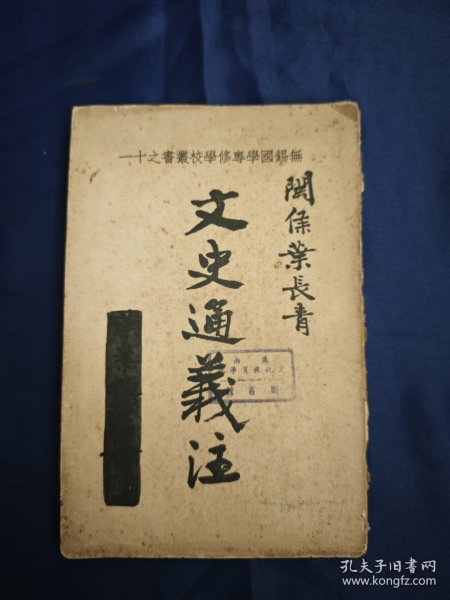 無錫國學專修學校叢書之十一
閩侯葉長青
文史通義注
孔夫子旧书网
www.kongfz.com